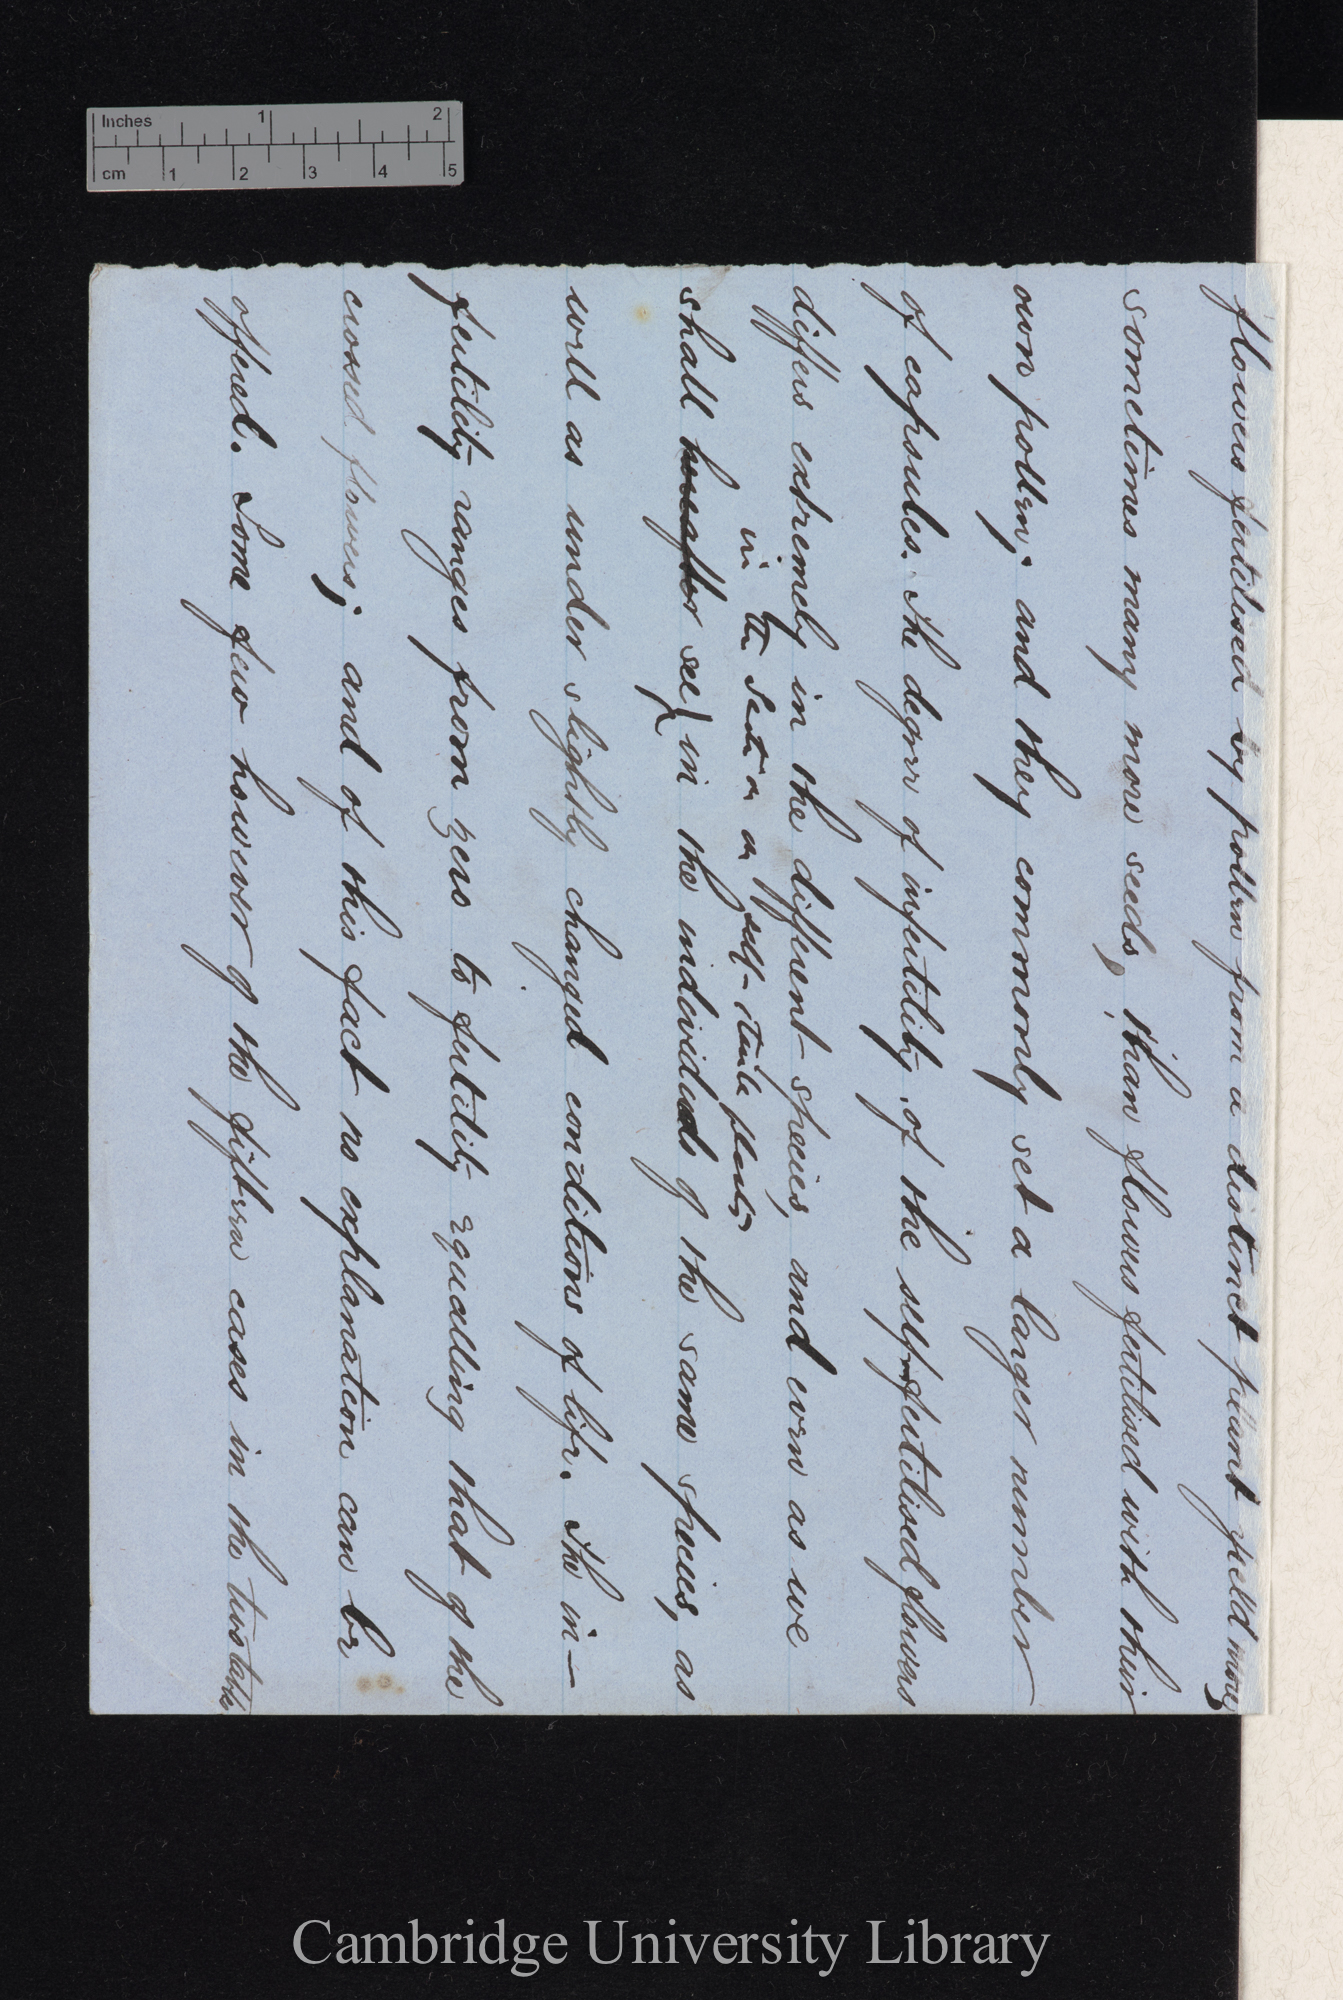 Inches 1 2
cm 1 2 3 4 5
flowers fertilised by pollen from a distinct plant yield more,
sometimes many more seeds, than flowers fertilised with their
own pollen; and they commonly set a larger number
of capsules. The degree of infertility of the self-fertilised flowers
differs extremely in the different species, and even as we
in the Section on self-sterile plants
shall hereafter see in the individuals of the same species, as
well as under slightly changed conditions of life. The in-
fertility ranges from zero to fertility equalling that of the
crossed flowers; and of this fact no explanation can be
offered. Some few however of the fifteen cases in the two tables
Cambridge University Library